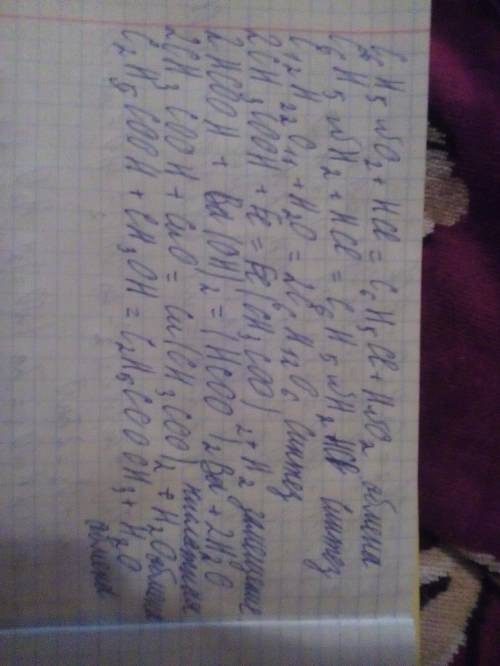 C6H5NO2 + HCl = C6H5Cl + HNO2 обмена
C6H5NH2 + HCl = C6H5NH2 HCl синтез
C12H22O11 + H2O = 2C6H12O6 синтез
2CH3COOH + Fe = Fe(CH3COO)2 + H2 замещение
2HCOOH + Ba(OH)2 = (HCOO)2Ba + 2H2O
2CH3COOH + CuO = Cu(CH3COO)2 + H2O обмена
C2H5COOH + CH3OH = C2H5COOCH3 + H2O
обмена